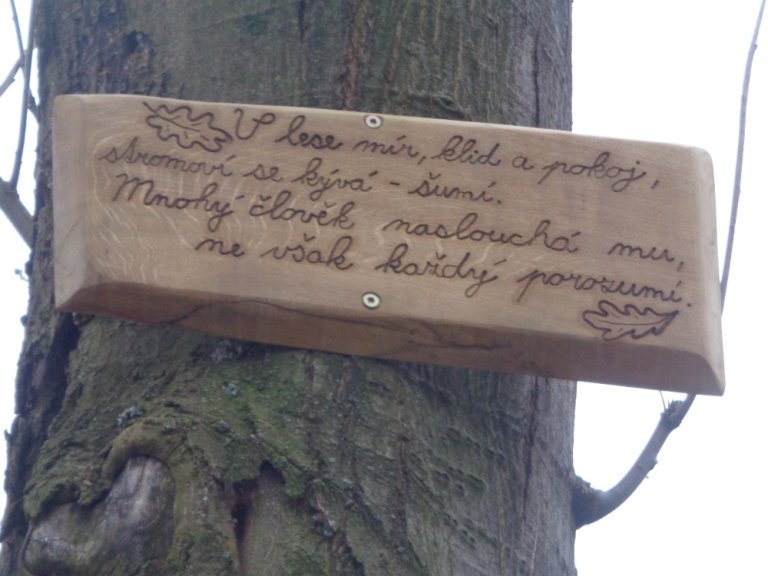 V lese mír, klid a pokoj,
stromoví se kývá - šumí.
Mnohý člověk naslouchá mu,
ne však každý porozumí.